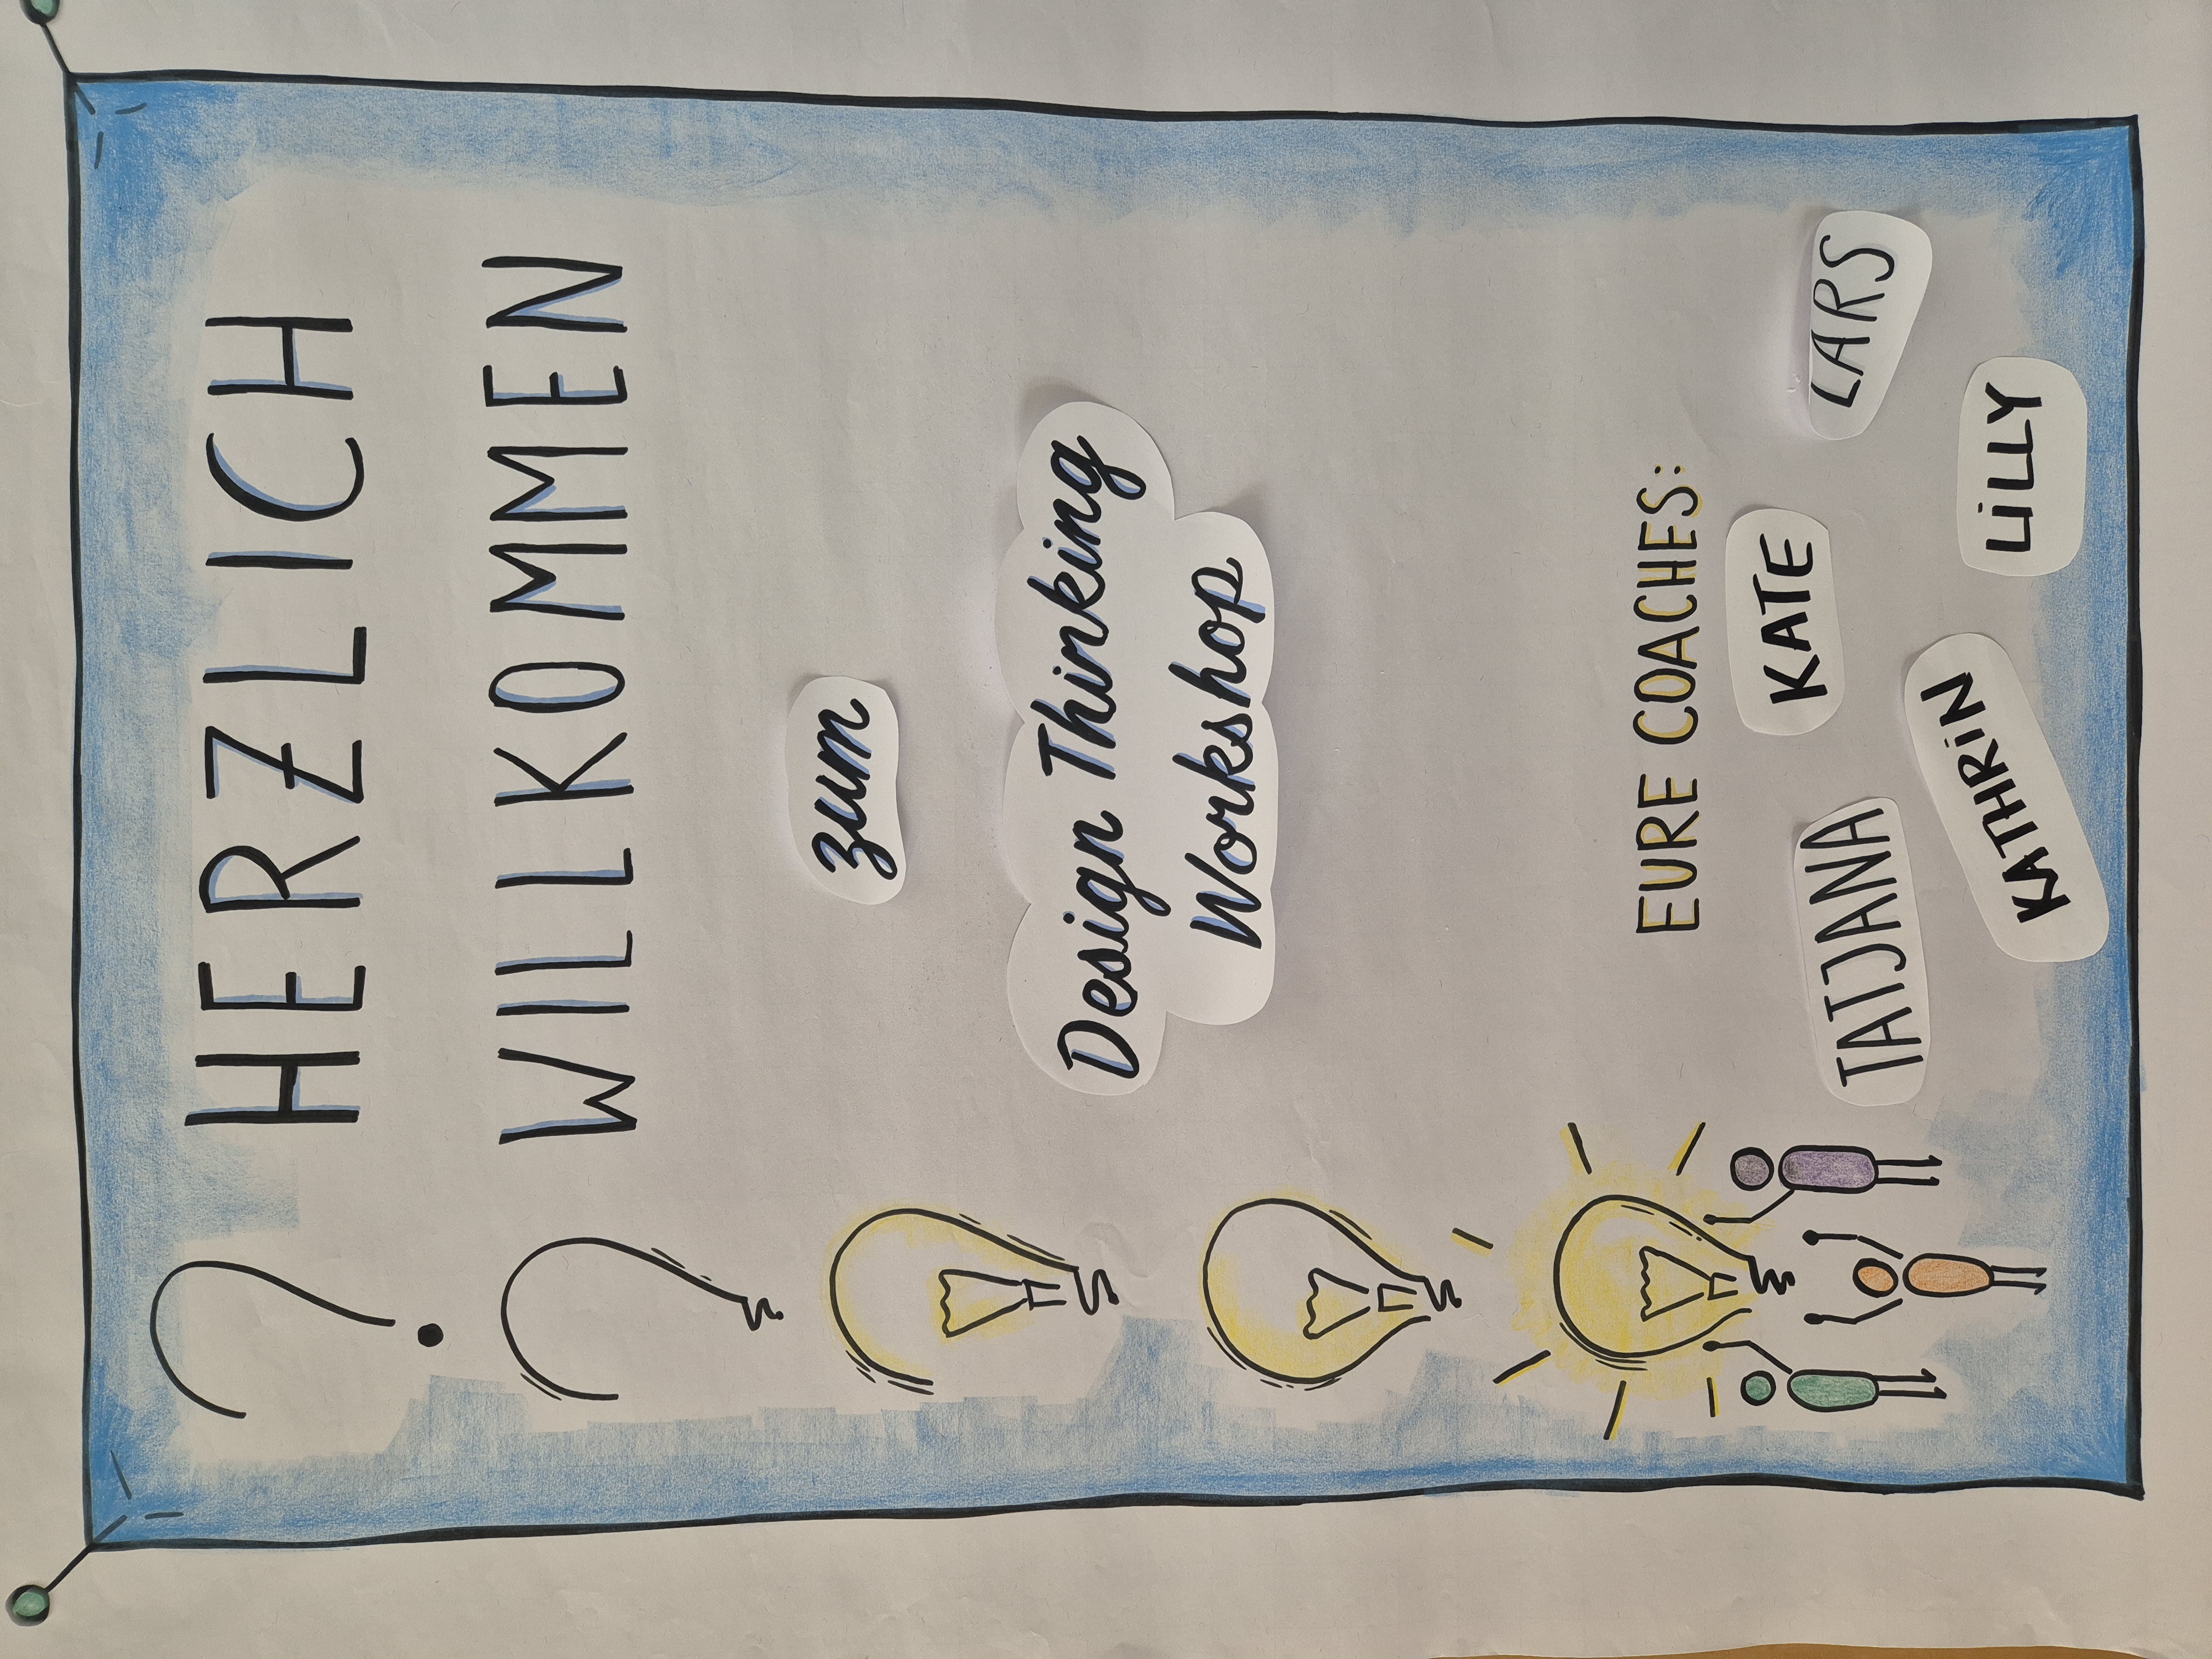 HERZLICH
WILLKOMMEN
zum
Design Thinking
Workshop
EURE COACHES:
TATJANA
KATE
LARS
KATHRiN
LiLLY